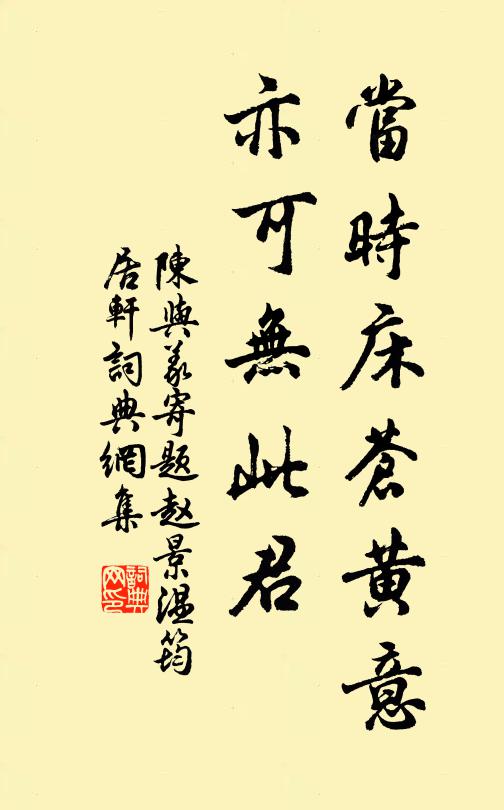 當時床蒼黄意
亦可無此君
陳與義寄題赵景温筠
居軒詞典網集
詞典
网印